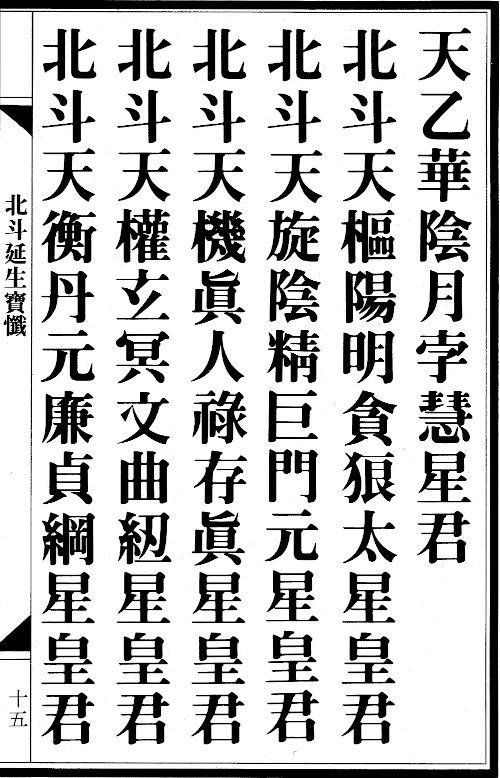 天乙華陰月孛慧星君
北斗天樞陽明貪狼太星皇君
北斗天旋陰精巨門元星皇君
北斗天機眞人祿存眞星皇君
北斗天權玄冥文曲紐星皇君
北斗天衡丹元廉貞綱星皇君
北斗延生寶懺
十五